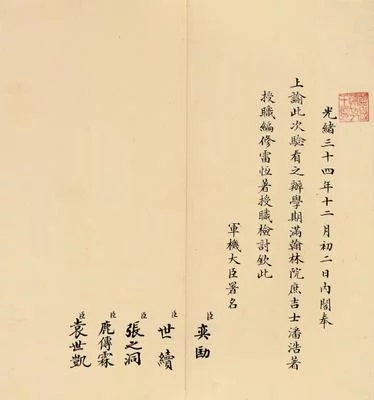 光緒三十四年十二月初二日內閣奉
上諭此次驗看之辦學期滿翰林院庶吉士潘浩著
授職編修雷恒著授職檢討欽此
軍機大臣署名
臣奕劻
臣世續
臣張之洞
臣鹿傳霖
臣袁世凱